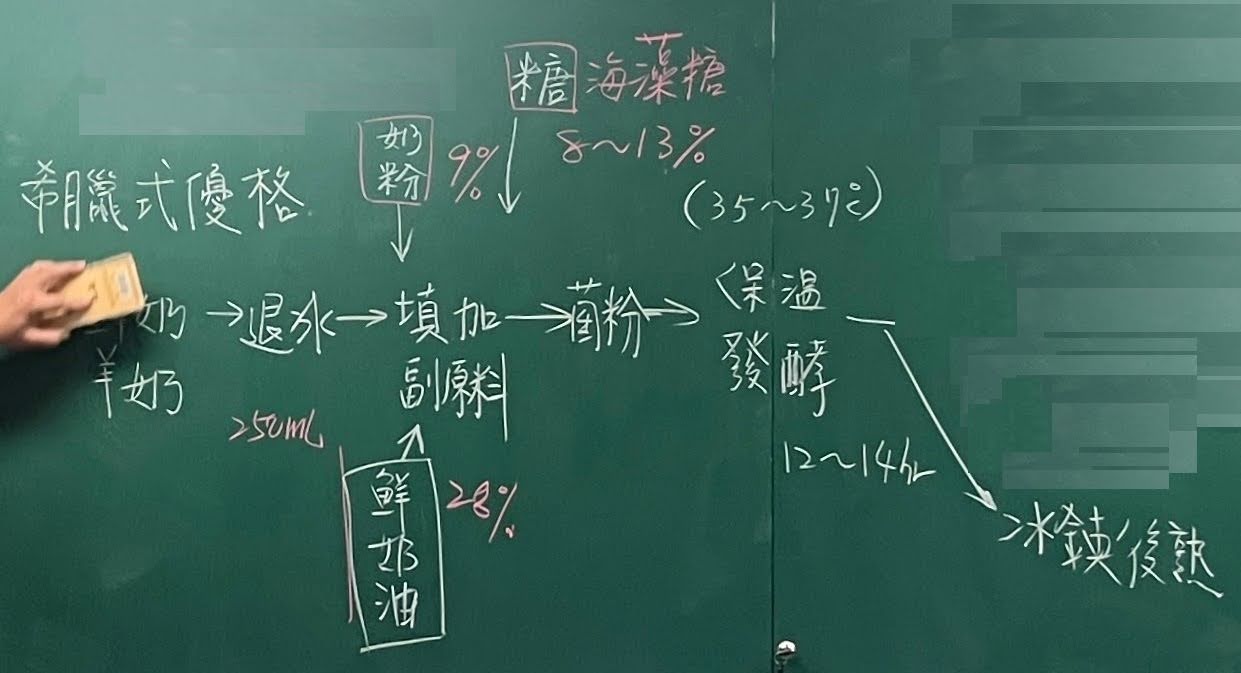 糖 海藻糖
8~13%
奶粉 9%
希臘式優格
(35~37℃)
奶 → 退冰 → 填加 → 菌粉 → 保溫
羊奶
副原料
發酵
250mL
12~14hr
鮮奶油 28%
冰鎮後熟